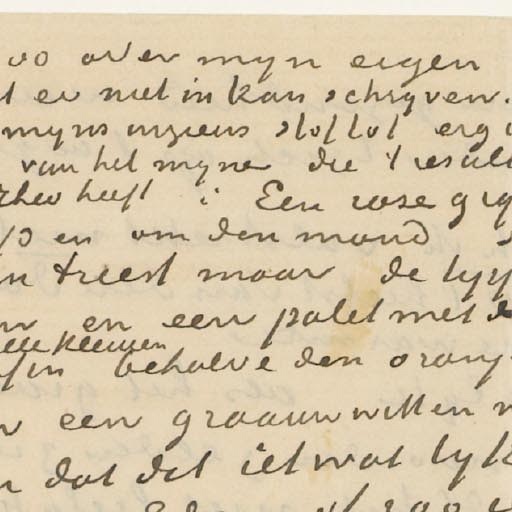 zoo over mijn eigen
er niet in kan schrijven.
myns inziens stof tot erg
van het mijne die 't result
Theo heeft : Een rose grij
en om den mond
triest maar de lyp
en een palet met de
kleuren
behalve den oranj
een graauw witten
dat dit ietwat lyk